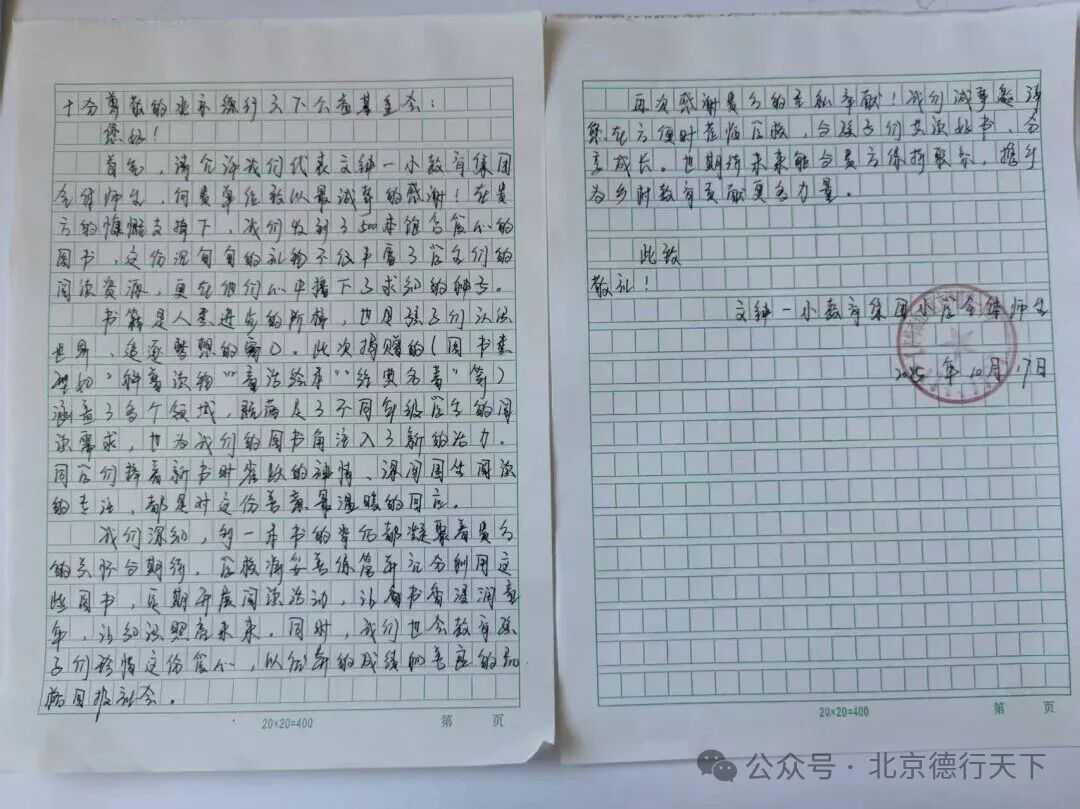 十分尊敬的北京德行天下公益基金会：
您好！
首先，请允许我们代表文钟一小教育集团
全体师生，向贵单位致以最诚挚的感谢！在贵
方的慷慨支持下，我们收到了500本饱含爱心的
图书，这份沉甸甸的礼物不仅丰富了学生们的
阅读资源，更在他们心中播下了求知的种子。
书籍是人类进步的阶梯，也是孩子们认识
世界、追逐梦想的窗口。此次捐赠的（图书类
型如"科普读物""童话绘本""经典名著"等）
涵盖了多个领域，既满足了不同年级学生的阅
读需求，也为我们的图书角注入了新的活力。
同学们捧着新书时雀跃的神情、课间阅读
的专注，都是对这份善意最温暖的回应。
我们深知，每一本书的背后都凝聚着贵方
的关怀与期待。学校将妥善保管并充分利用这
些图书，定期开展阅读活动，让书香浸润童
年，让知识照亮未来。同时，我们也会教育孩
子们珍惜这份爱心，以优异的成绩和善良的品
格回报社会。
20×20=400
第 页
再次感谢贵方的无私奉献！我们诚挚邀请
您在方便时莅临学校，与孩子们共读好书、分
享成长。也期待未来能与贵方保持联系，携手
为乡村教育贡献更多力量。
此致
敬礼！
文钟一小教育集团小学全体师生
2025年10月17日
20×20=400
第 页
公众号·北京德行天下